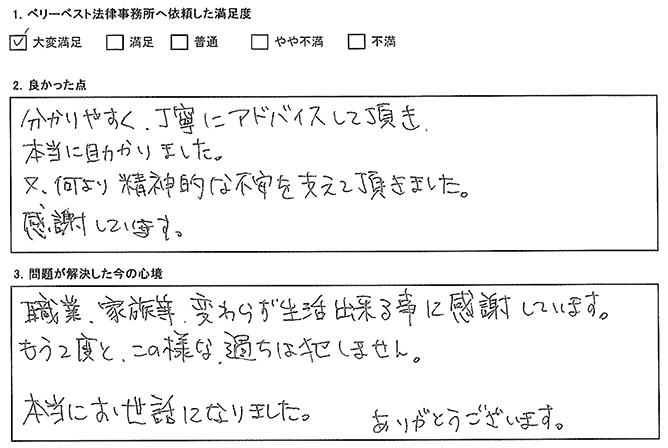 1. ベリーベスト法律事務所へ依頼した満足度
☑ 大変満足 □ 満足 □ 普通 □ やや不満 □ 不満
2. 良かった点
分かりやすく、丁寧にアドバイスして頂き、
本当に助かりました。
又、何より精神的な不安を支えて頂きました。
感謝しています。
3. 問題が解決した今の心境
職業、家族等、変わらず生活出来る事に感謝しています。
もう2度と、この様な、過ちは犯しません。
本当にお世話になりました。 ありがとうございます。